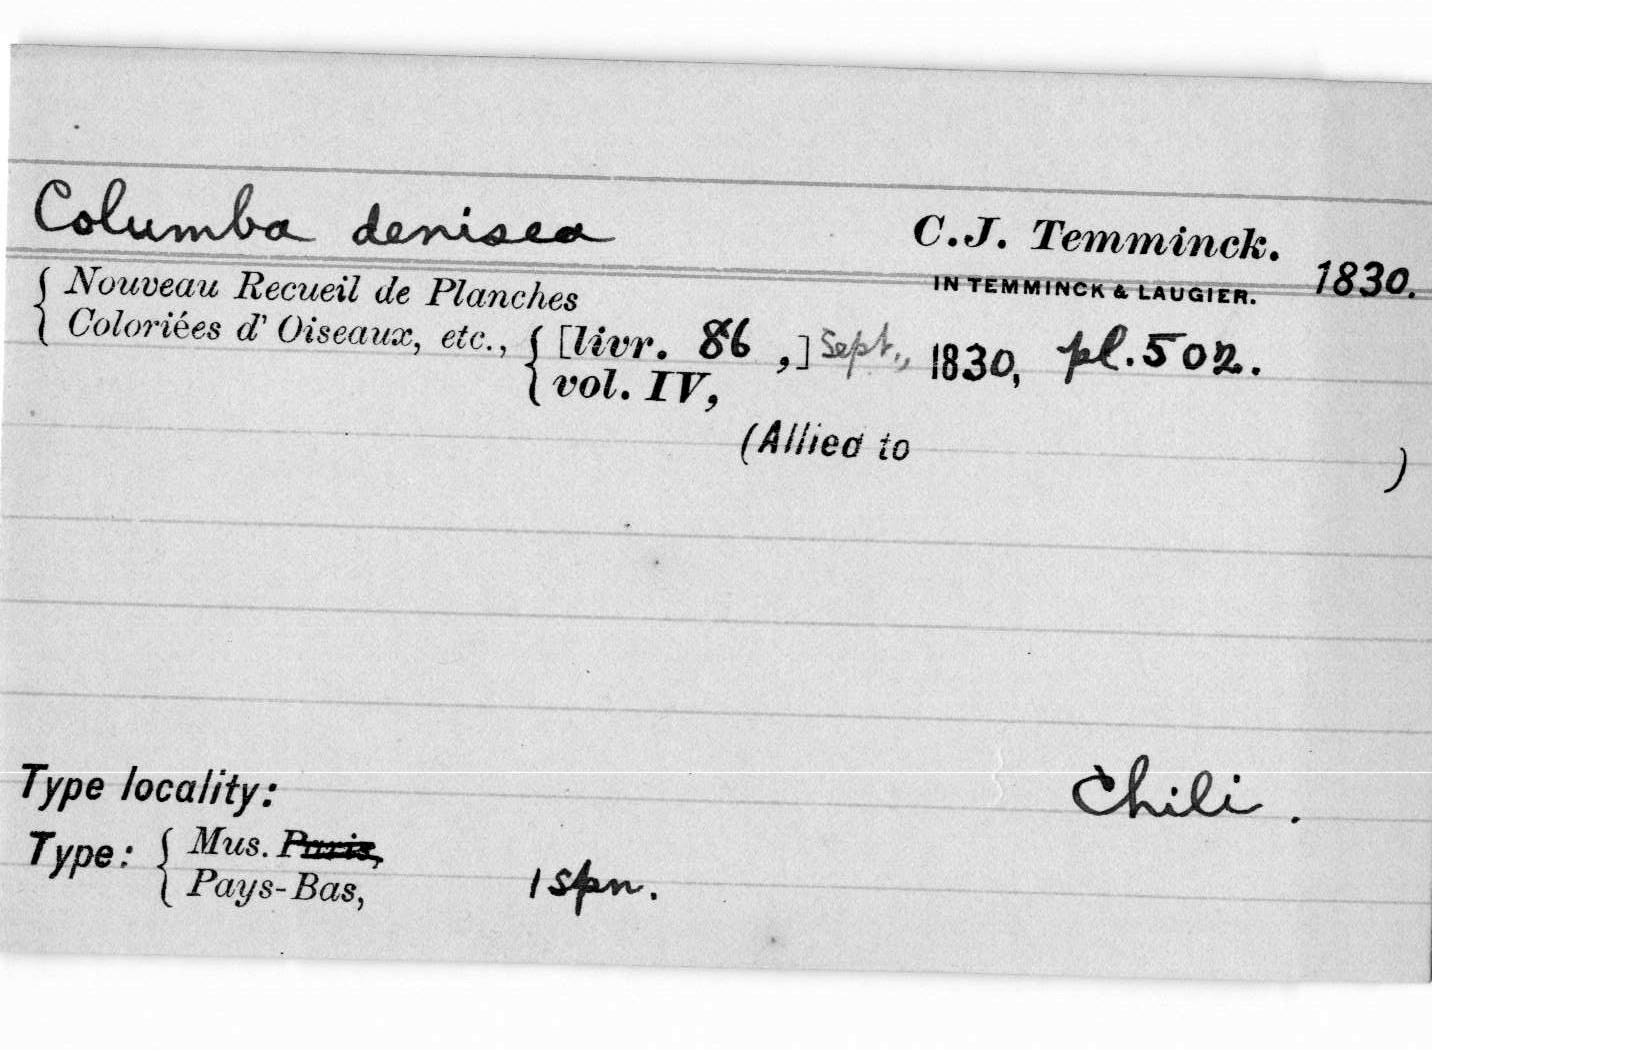 Columba denisea C.J. Temminck.
IN TEMMINCK & LAUGIER. 1830.
{ Nouveau Recueil de Planches
{ Coloriées d' Oiseaux, etc., { [livr. 86 ,] Sept., 1830, pl. 502.
{ vol. IV,
(Allied to )
Type locality: Chili.
Type: { Mus. Paris,
{ Pays-Bas, 1 spn.